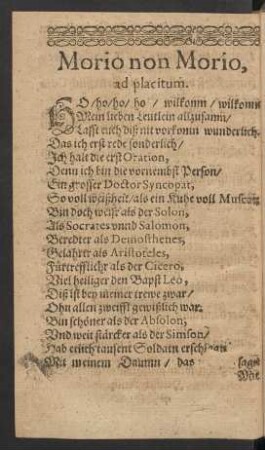 Morio non Morio,
ad placitum.
HO/ho/ho/ ho / wilkomm / wilkomm
Mein lieben Leutlein allzusamn/
Lasst euch diß nit vorkomn wunderlich.
Das ich erst rede sonderlich/
Ich halt die erst Oration,
Denn ich bin die vornembst Person/
Ein grosser Doctor Syncopat,
So voll weißheit/als ein Kuhe voll Muscat:
Bin doch weiser als der Solon,
Als Socrates vnnd Salomon,
Beredter als Demosthenes,
Gelahrter als Aristoteles,
Fürtrefflicher als der Cicero,
Viel heiliger den Bapst Leo,
Diß ist bey meiner trewe zwar/
Ohn allen zweiffl gewißlich war.
Bin schöner als der Absolon,
Vnd weit stärcker als der Simson/
Hab etlich tausent Soldatn
Mit meinem Daumn / das sagt